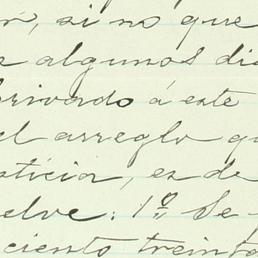 n, si no que
algunos dia
privado á este
el arreglo qu
sticia, es de
elve: 1º Se-
ciento treinta